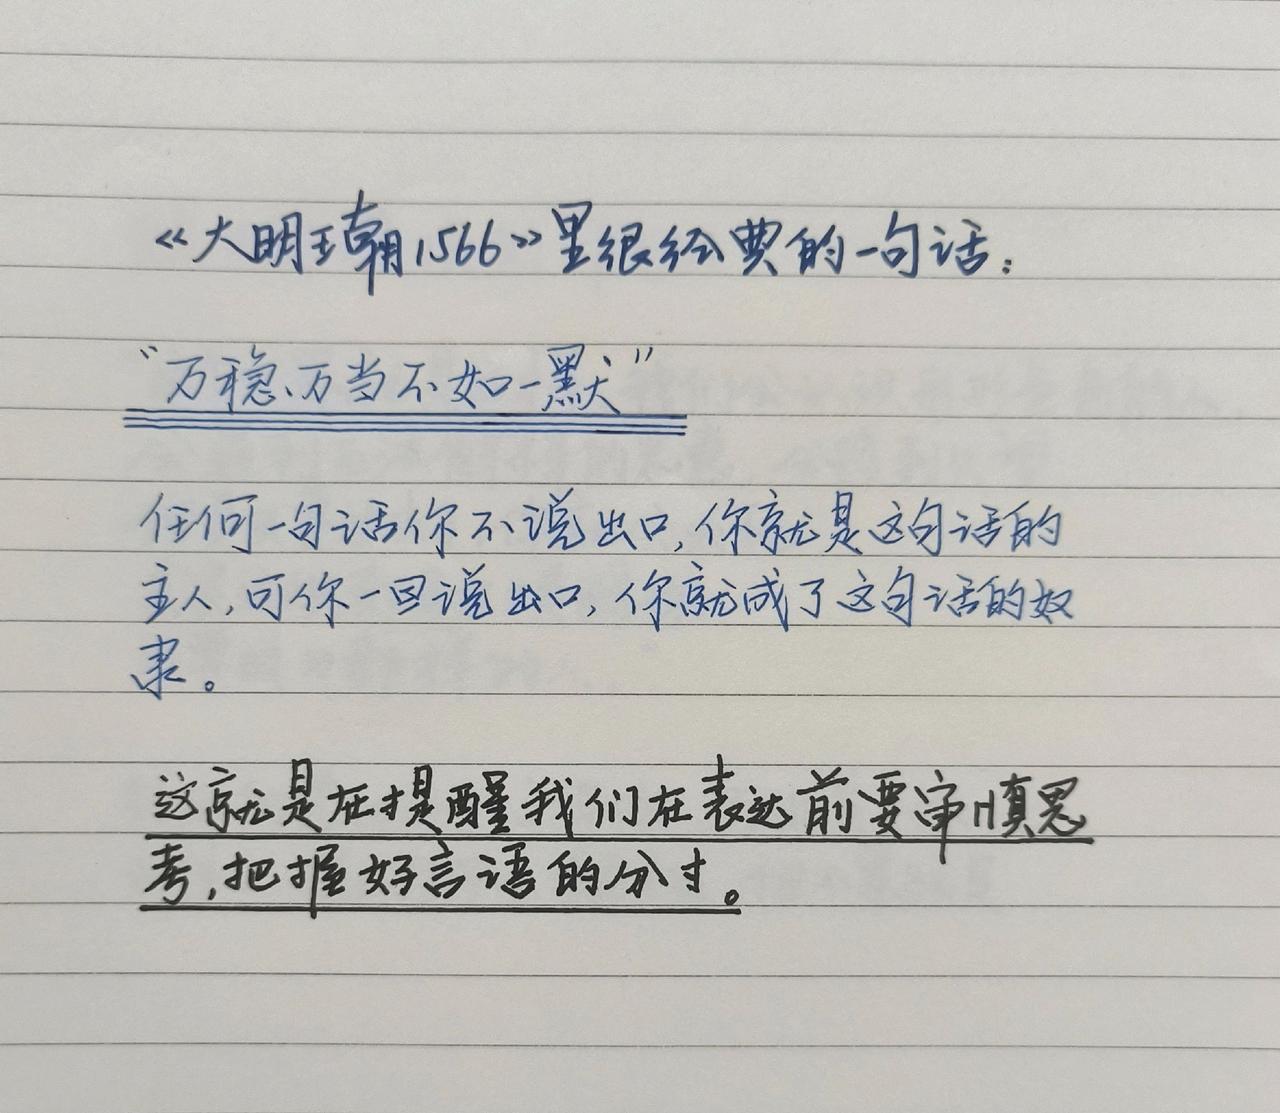 《大明王朝1566》里很经典的一句话：
“万稳、万当不如一默”
任何一句话你不说出口,你就是这句话的
主人,可你一旦说出口,你就成了这句话的奴
隶。
这就是在提醒我们在表达前要审慎思
考,把握好言语的分寸。